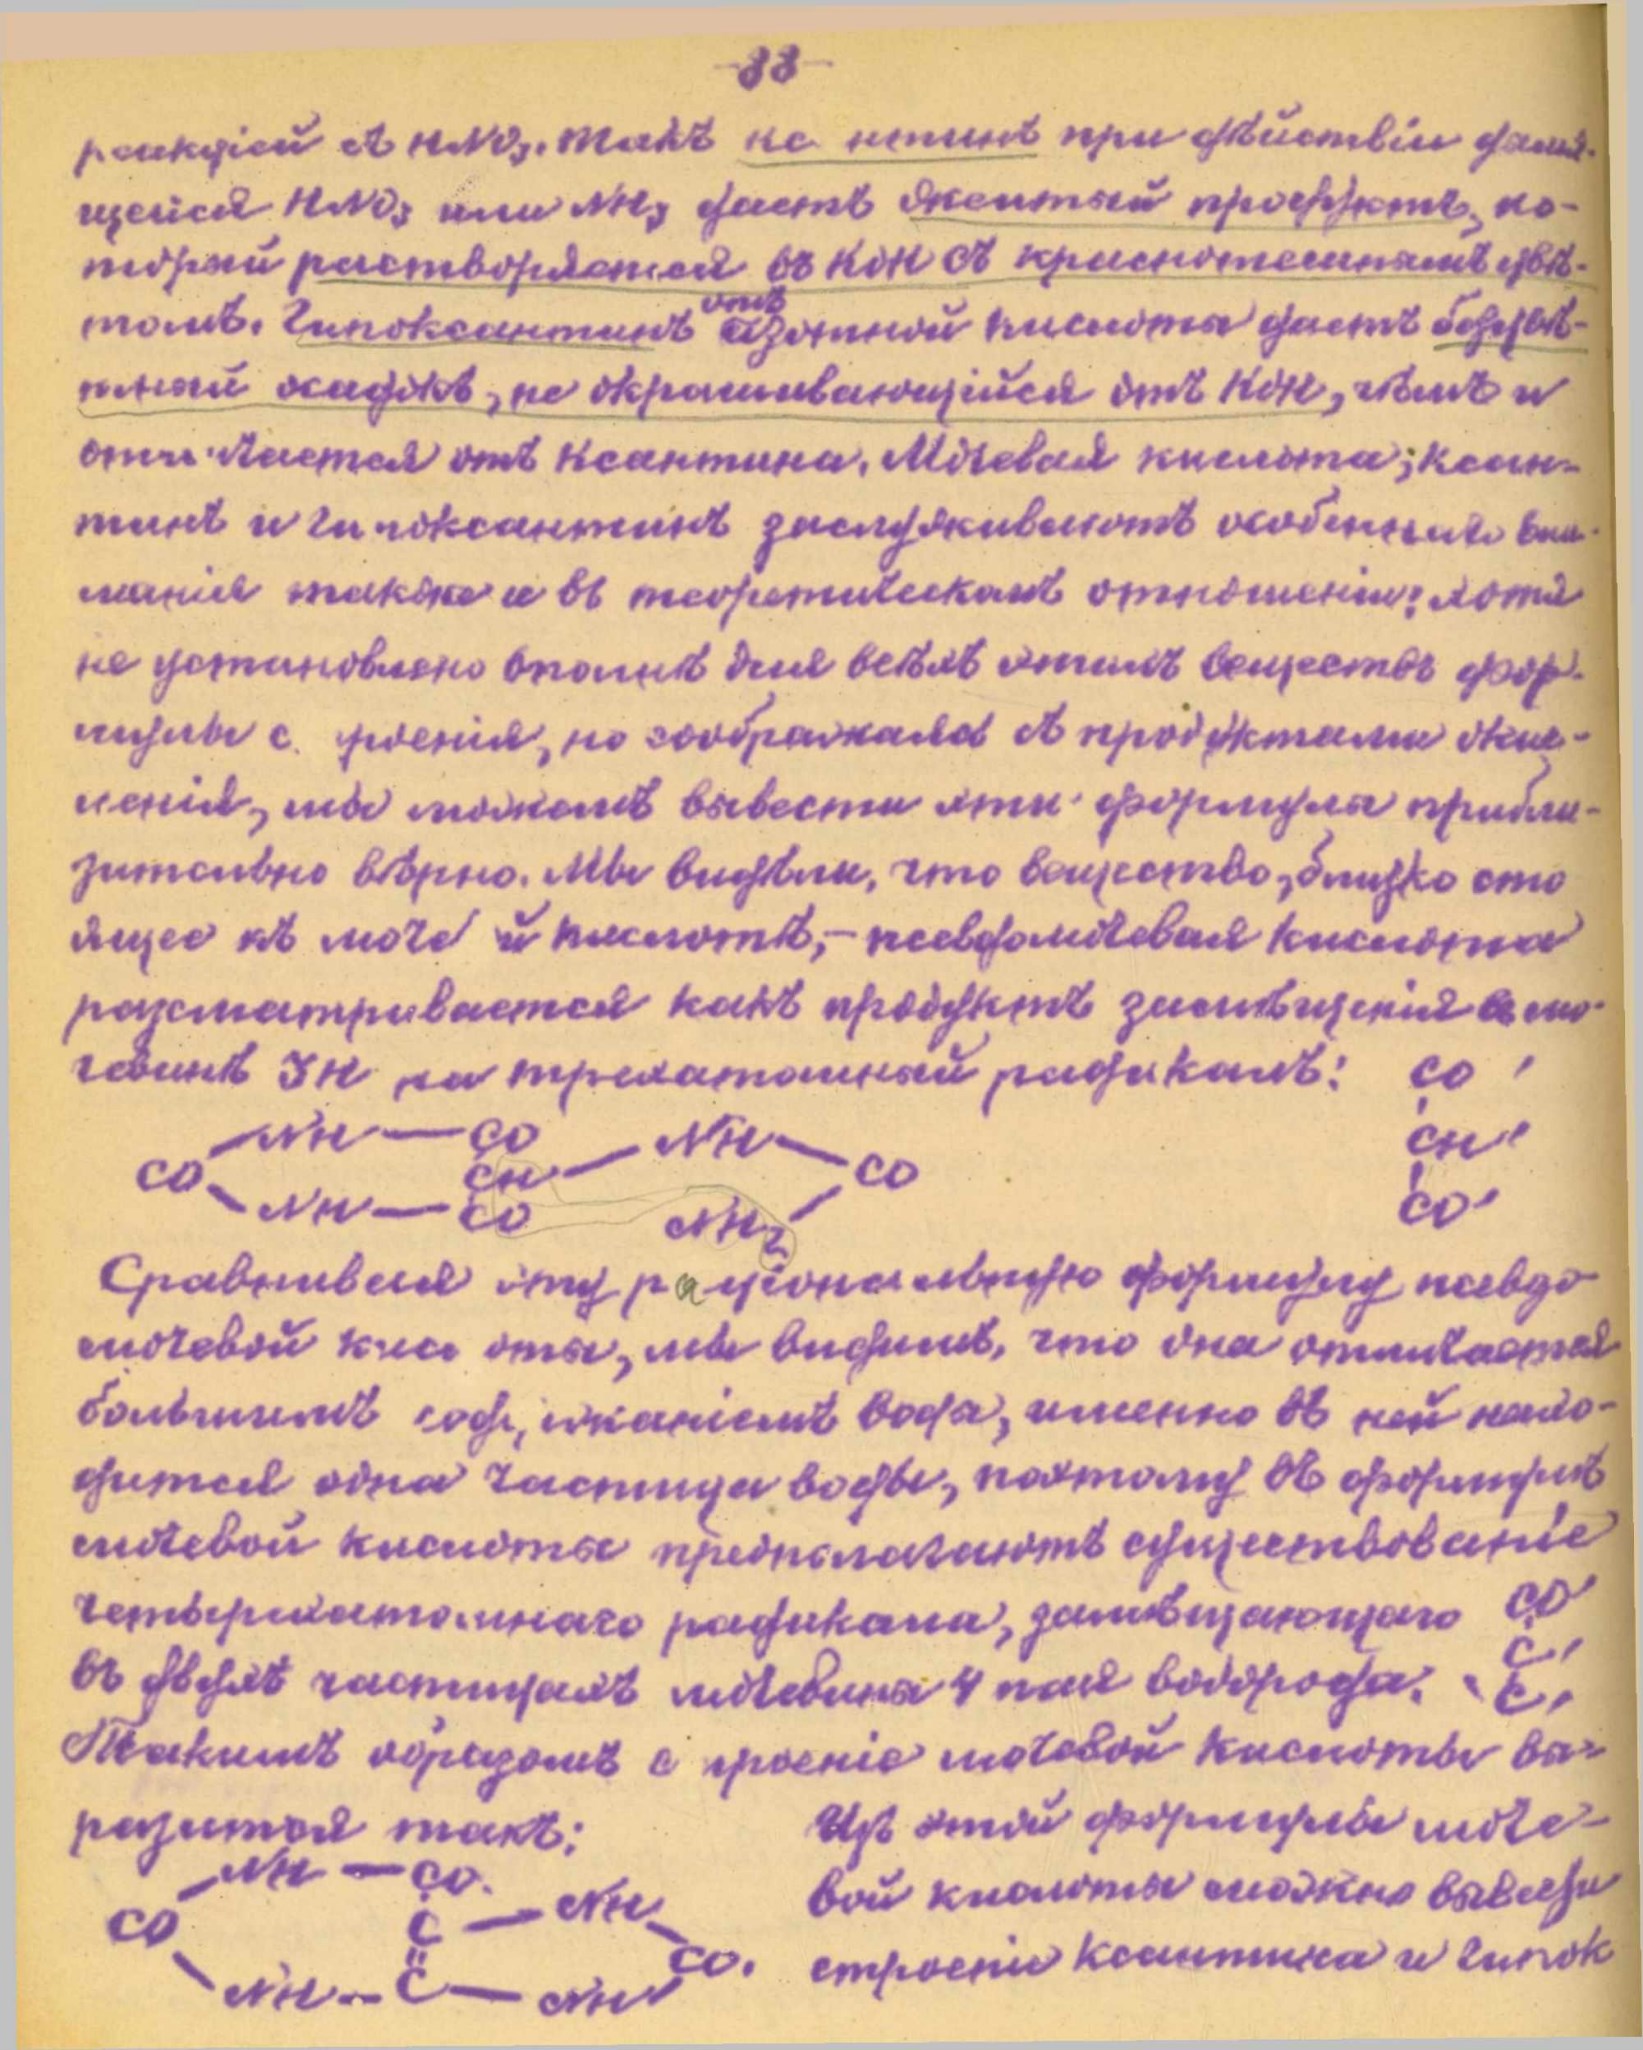 -88-
реакціей съ HNO3. Такъ кс нтинъ при дѣйствіи дымя-
щейся HNO3 или NH3 даетъ желтый продуктъ, ко-
торый растворяется въ KOH съ краснотемнымъ цвѣ-
томъ. Гипоксантинъ отъ азотной кислоты даетъ безцвѣ-
тный осадокъ, не окрашивающійся отъ KOH, чѣмъ и
отли чается отъ ксантина. Мочевая кислота, ксан-
тинъ и ги оксантинъ заслуживаютъ особеннаго вни-
манія также и въ теоретическомъ отношеніи: хотя
не установлено вполнѣ для всѣхъ этихъ веществъ фор-
мулы с роенія, но сообразжаясь съ продуктами окис-
ленія, мы можемъ вывести эти формулы прибли-
зительно вѣрно. Мы видѣли, что вещество, близко сто
ящее къ моче й кислотѣ, - псевдомочевая кислота
разсматривается какъ продуктъ замѣщенія въ мо-
чевинѣ 3H на трехатомный радикалъ: CO'
NH — CO NH CH'
CO CH CO CO'
NH — CO NH2
Сравнивая эту раціональную формулу псевдо
мочевой кис оты, мы видимъ, что она отличается
большимъ сод жаніемъ воды, именно въ ней нахо-
дится одна частица воды, поэтому въ формулѣ
мочевой кислоты предполагаютъ существованіе
четырехатомнаго радикала, замѣщающаго CO'
въ двухъ частицахъ мочевины 4 пая водорода. C'
C'
Такимъ образомъ с роеніе мочевой кислоты вы-
разится такъ: Изъ этой формулы моче-
NH — CO вой кислоты можно вывести
CO C — NH строеніе ксантина и гипок
C CO.
NH — C — NH